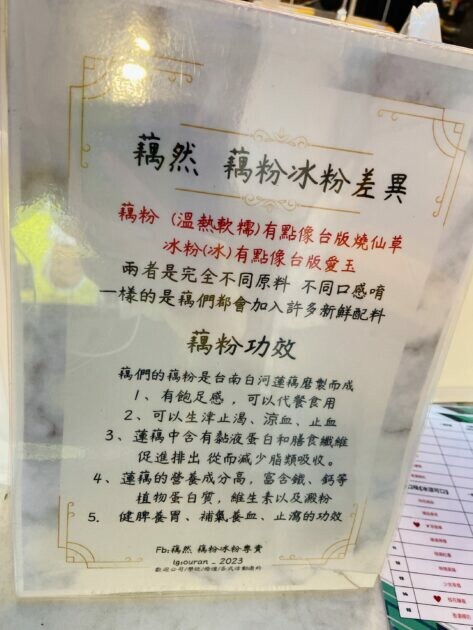 藕然 藕粉冰粉差異
藕粉 (溫熱軟糯)有點像台版燒仙草
冰粉(冰)有點像台版愛玉
兩者是完全不同原料 不同口感唷
一樣的是藕們都會加入許多新鮮配料
藕粉功效
藕們的藕粉是台南白河蓮藕磨製而成
1、有飽足感，可以代餐食用
2、可以生津止渴、涼血、止血
3、蓮藕中含有黏液蛋白和膳食纖維
促進排出 從而減少脂類吸收。
4、蓮藕的營養成分高，富含鐵、鈣等
植物蛋白質，維生素以及澱粉
5. 健脾養胃、補氣養血、止瀉的功效
Fb:藕然 藕粉冰粉專賣
Ig:ouran _ 2023